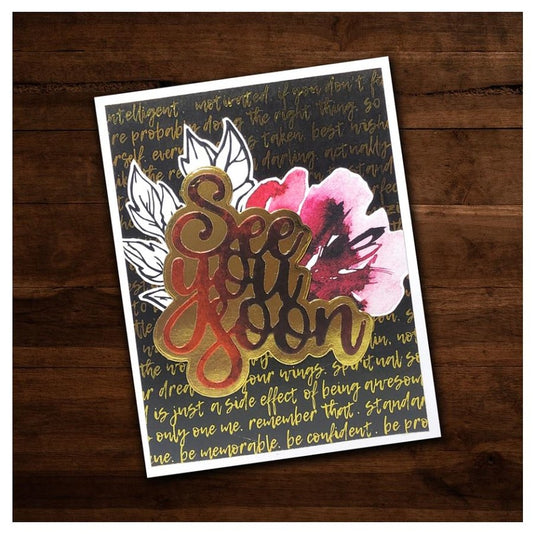 intelligent. motivated. if you don't f
re probably doing the right thing. so
rself. every is taken. best wishe
darling. actually
See
you
Soon
the wo
ur dream your wings. spiritual so
d is just a side effect of being awesom
only one me. remember that. standar
ue. be memorable. be confident. be pro